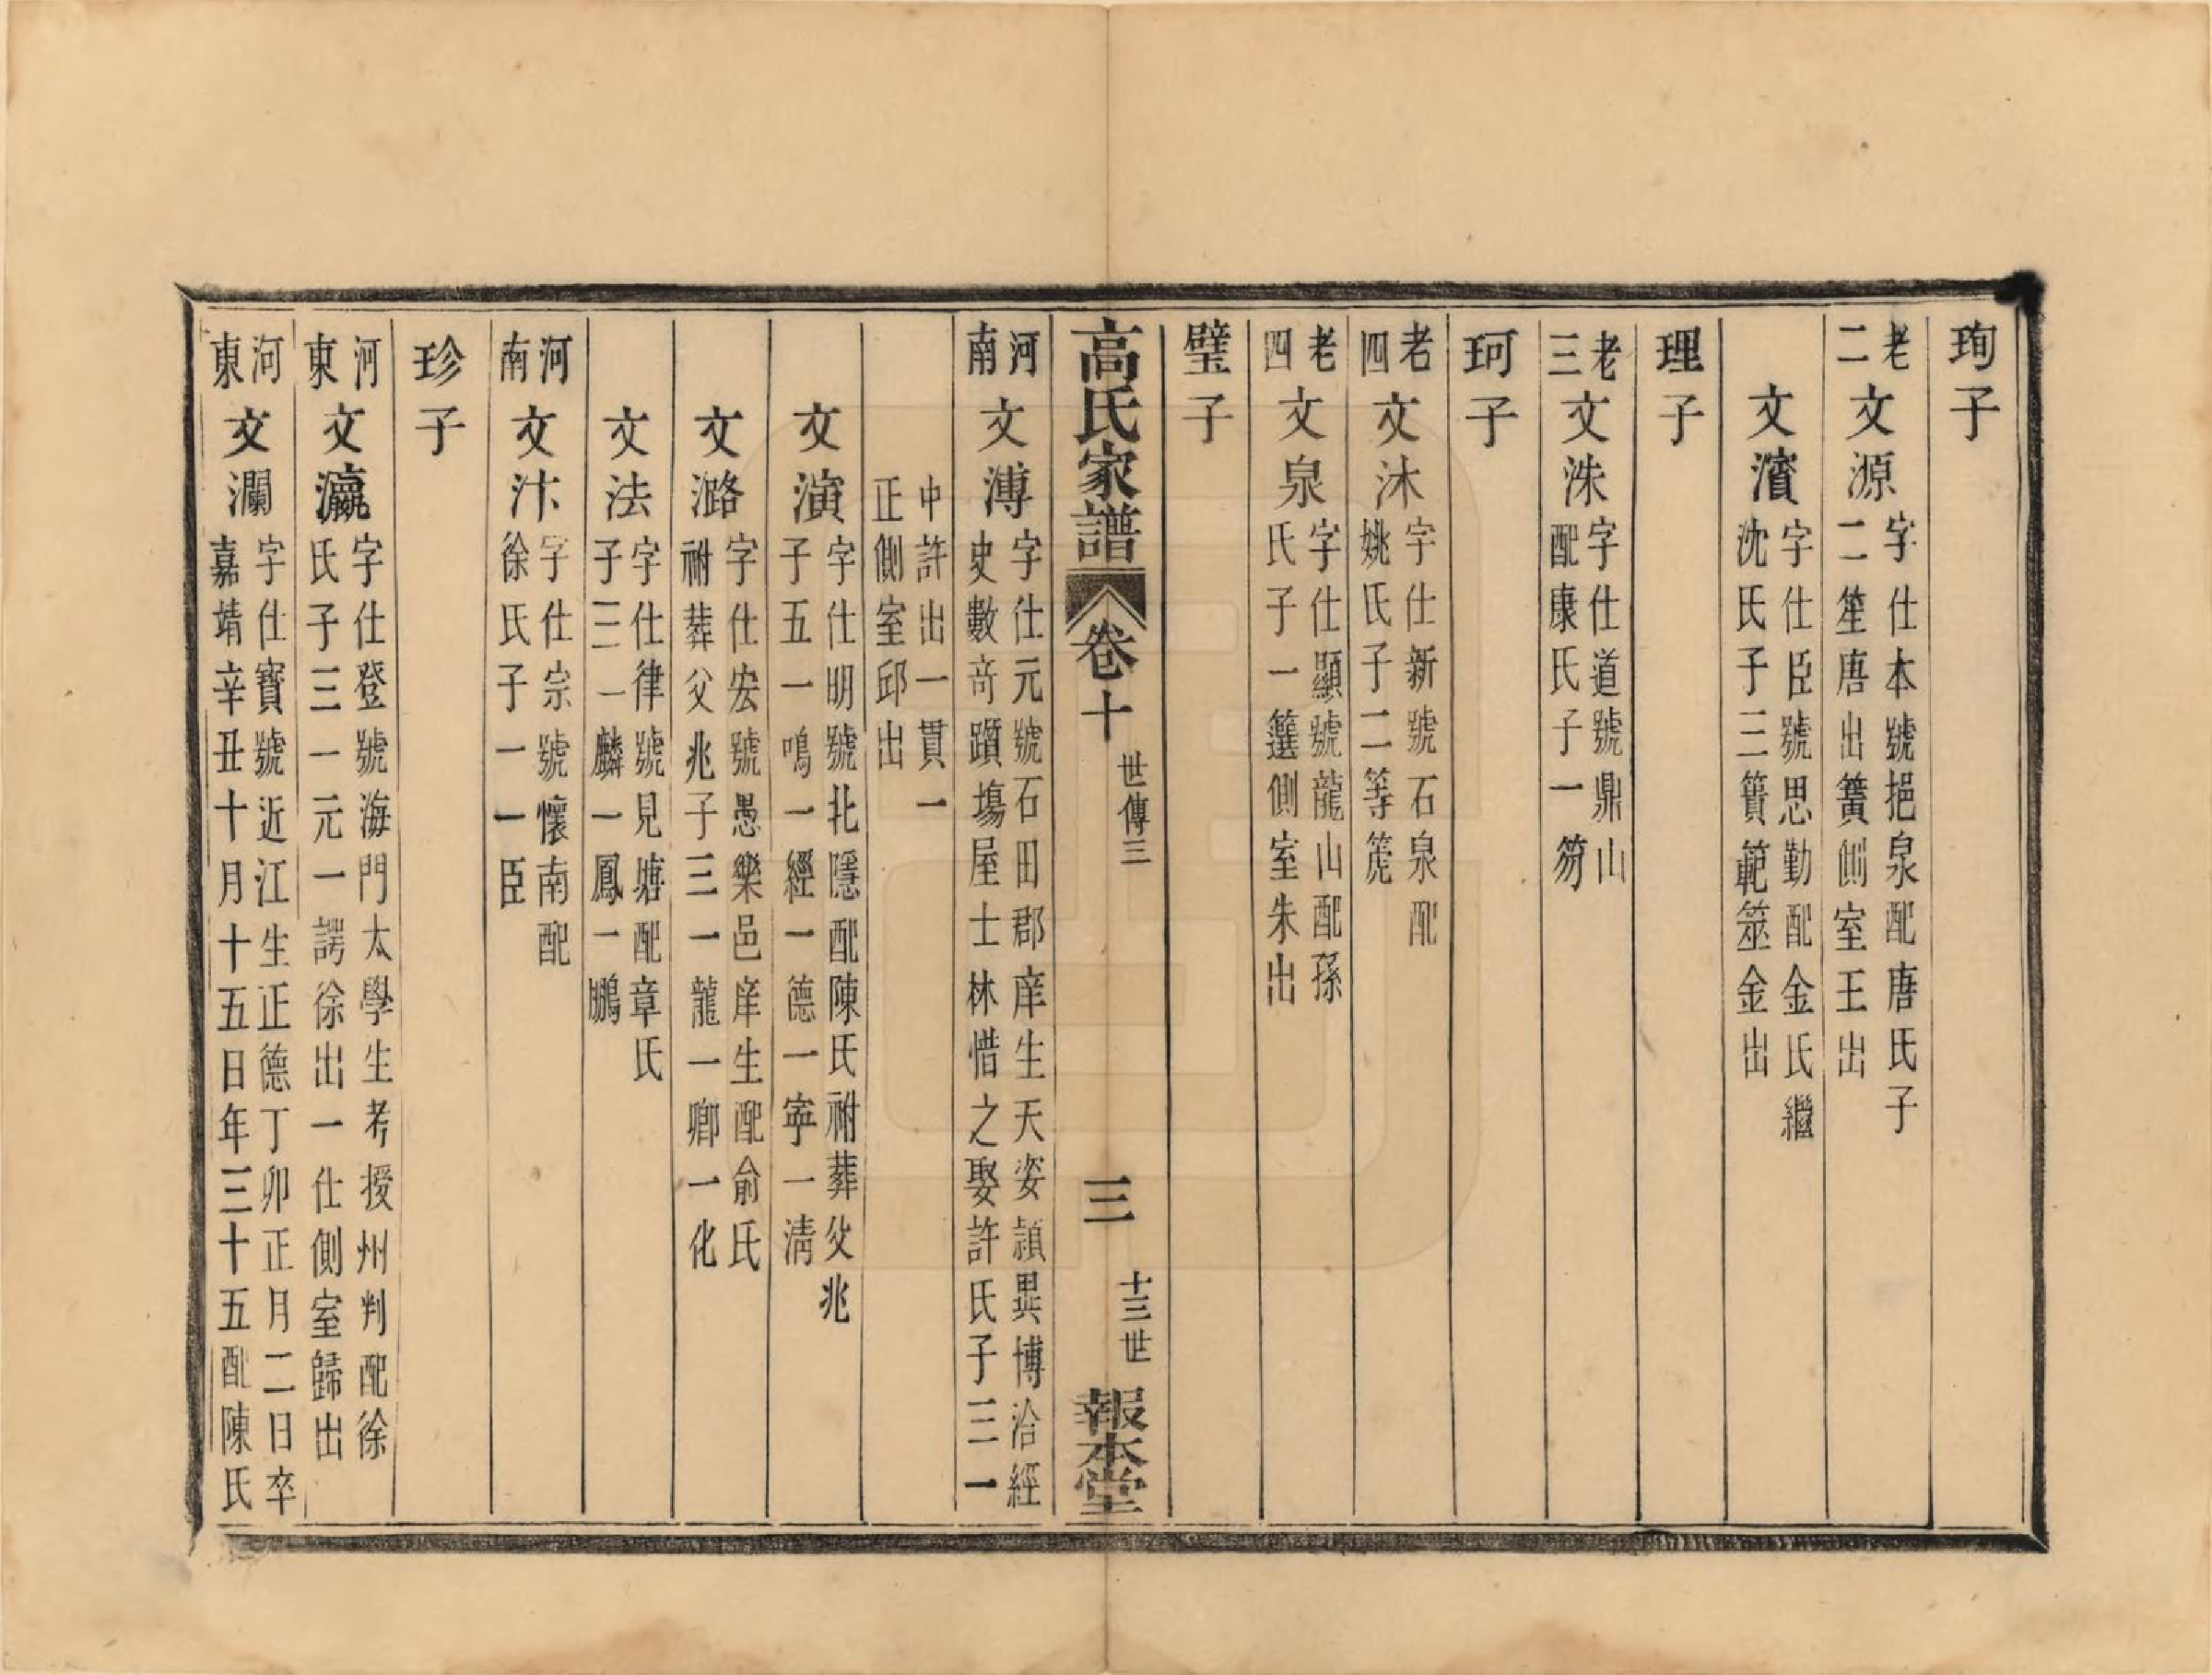 珣子
老二 文源 字仕本號挹泉配唐氏子
二笙唐出簧側室王出
文濱 字仕臣號思勤配金氏繼
沈氏子三簣範筮金出
理子
老三 文洙 字仕道號鼎山
配康氏子一笏
珂子
老四 文沐 字仕新號石泉配
姚氏子二等箎
老四 文泉 字仕顯號龍山配孫
氏子一簉側室朱出
璧子
高氏家譜 卷十 世傳三 三 十三世 報本堂
河南 文溥 字仕元號石田郡庠生天姿穎異博洽經
史數奇躓塲屋士林惜之娶許氏子三一
中許出一貫一
正側室邱出
文演 字仕明號北隱配陳氏祔葬父兆
子五一鳴一經一德一寧一清
文潞 字仕宏號愚樂邑庠生配俞氏
祔葬父兆子三一龍一卿一化
文法 字仕律號見塘配章氏
子三一麟一鳳一鵬
河南 文汴 字仕宗號懷南配
徐氏子一一臣
珍子
河東 文瀛 字仕登號海門太學生考授州判配徐
氏子三一元一諤徐出一仕側室歸出
河東 文瀾 字仕寶號近江生正德丁卯正月二日卒
嘉靖辛丑十月十五日年三十五配陳氏